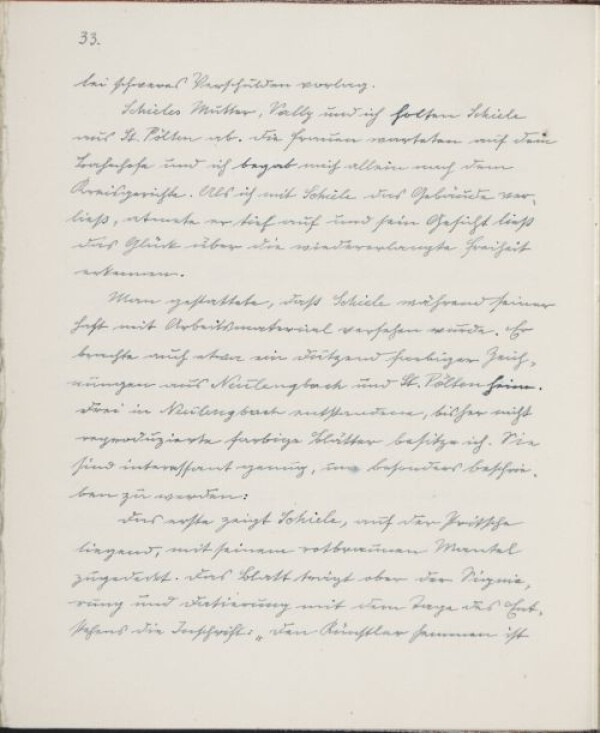 33.
bei schweres Verschulden vorlag.
Schieles Mutter, Vally und ich holten Schiele
aus St. Pölten ab. Die Frauen warteten auf dem
Bahnhofe und ich begab mich allein nach dem
Kreisgerichte. Als ich mit Schiele das Gebäude ver-
ließ, atmete er tief auf und sein Gesicht ließ
das Glück über die wiedererlangte Freiheit
erkennen.
Man gestattete, daß Schiele während seiner
Haft mit Arbeitsmaterial versehen wurde. Er
brachte auch etwa ein Dutzend farbiger Zeich-
nungen aus Neulengbach und St. Pölten heim.
Drei in Neulengbach entstandene, bisher nicht
reproduzierte farbige Blätter besitze ich. Sie
sind interessant genug, um besonders beschrie-
ben zu werden:
Das erste zeigt Schiele, auf der Pritsche
liegend, mit seinem rotbraunen Mantel
zugedeckt. Das Blatt trägt ober der Signie-
rung und Datierung mit dem Tage des Ent-
stehens die Inschrift: „Den Künstler hemmen ist